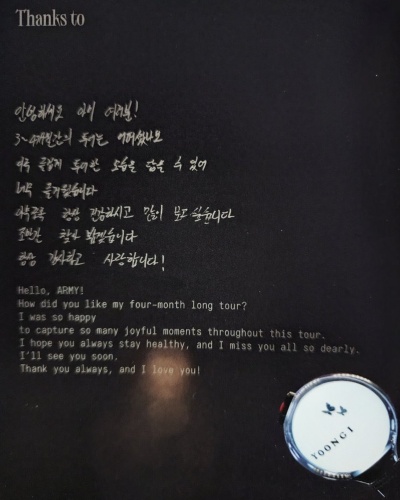 Thanks to
안녕하세요 아미 여러분!
3~4개월간의 투어는 어떠셨나요
아주 즐겁게 투어한 모습을 담을 수 있어
너무 즐거웠습니다
아무쪼록 항상 건강하시고 많이 보고싶습니다
조만간 찾아 뵙겠습니다
항상 감사하고 사랑합니다!
Hello, ARMY!
How did you like my four-month long tour?
I was so happy
to capture so many joyful moments throughout this tour.
I hope you always stay healthy, and I miss you all so dearly.
I'll see you soon.
Thank you always, and I love you!
YOONGI